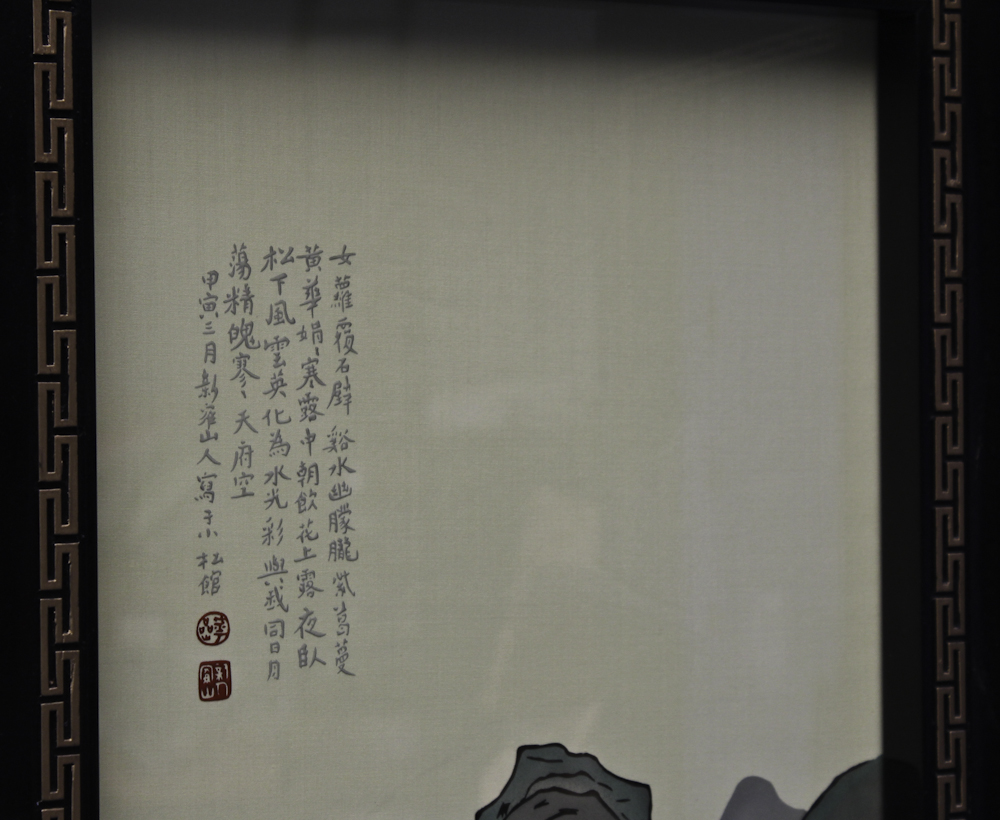 女蘿覆石壁谿水幽朦朧紫葛蔓
黃華娟〻寒露中朝飲花上露夜臥
松下風雲英化為水光彩與我同日月
蕩精魄寥〻天府空
甲寅三月新羅山人寫于小松館